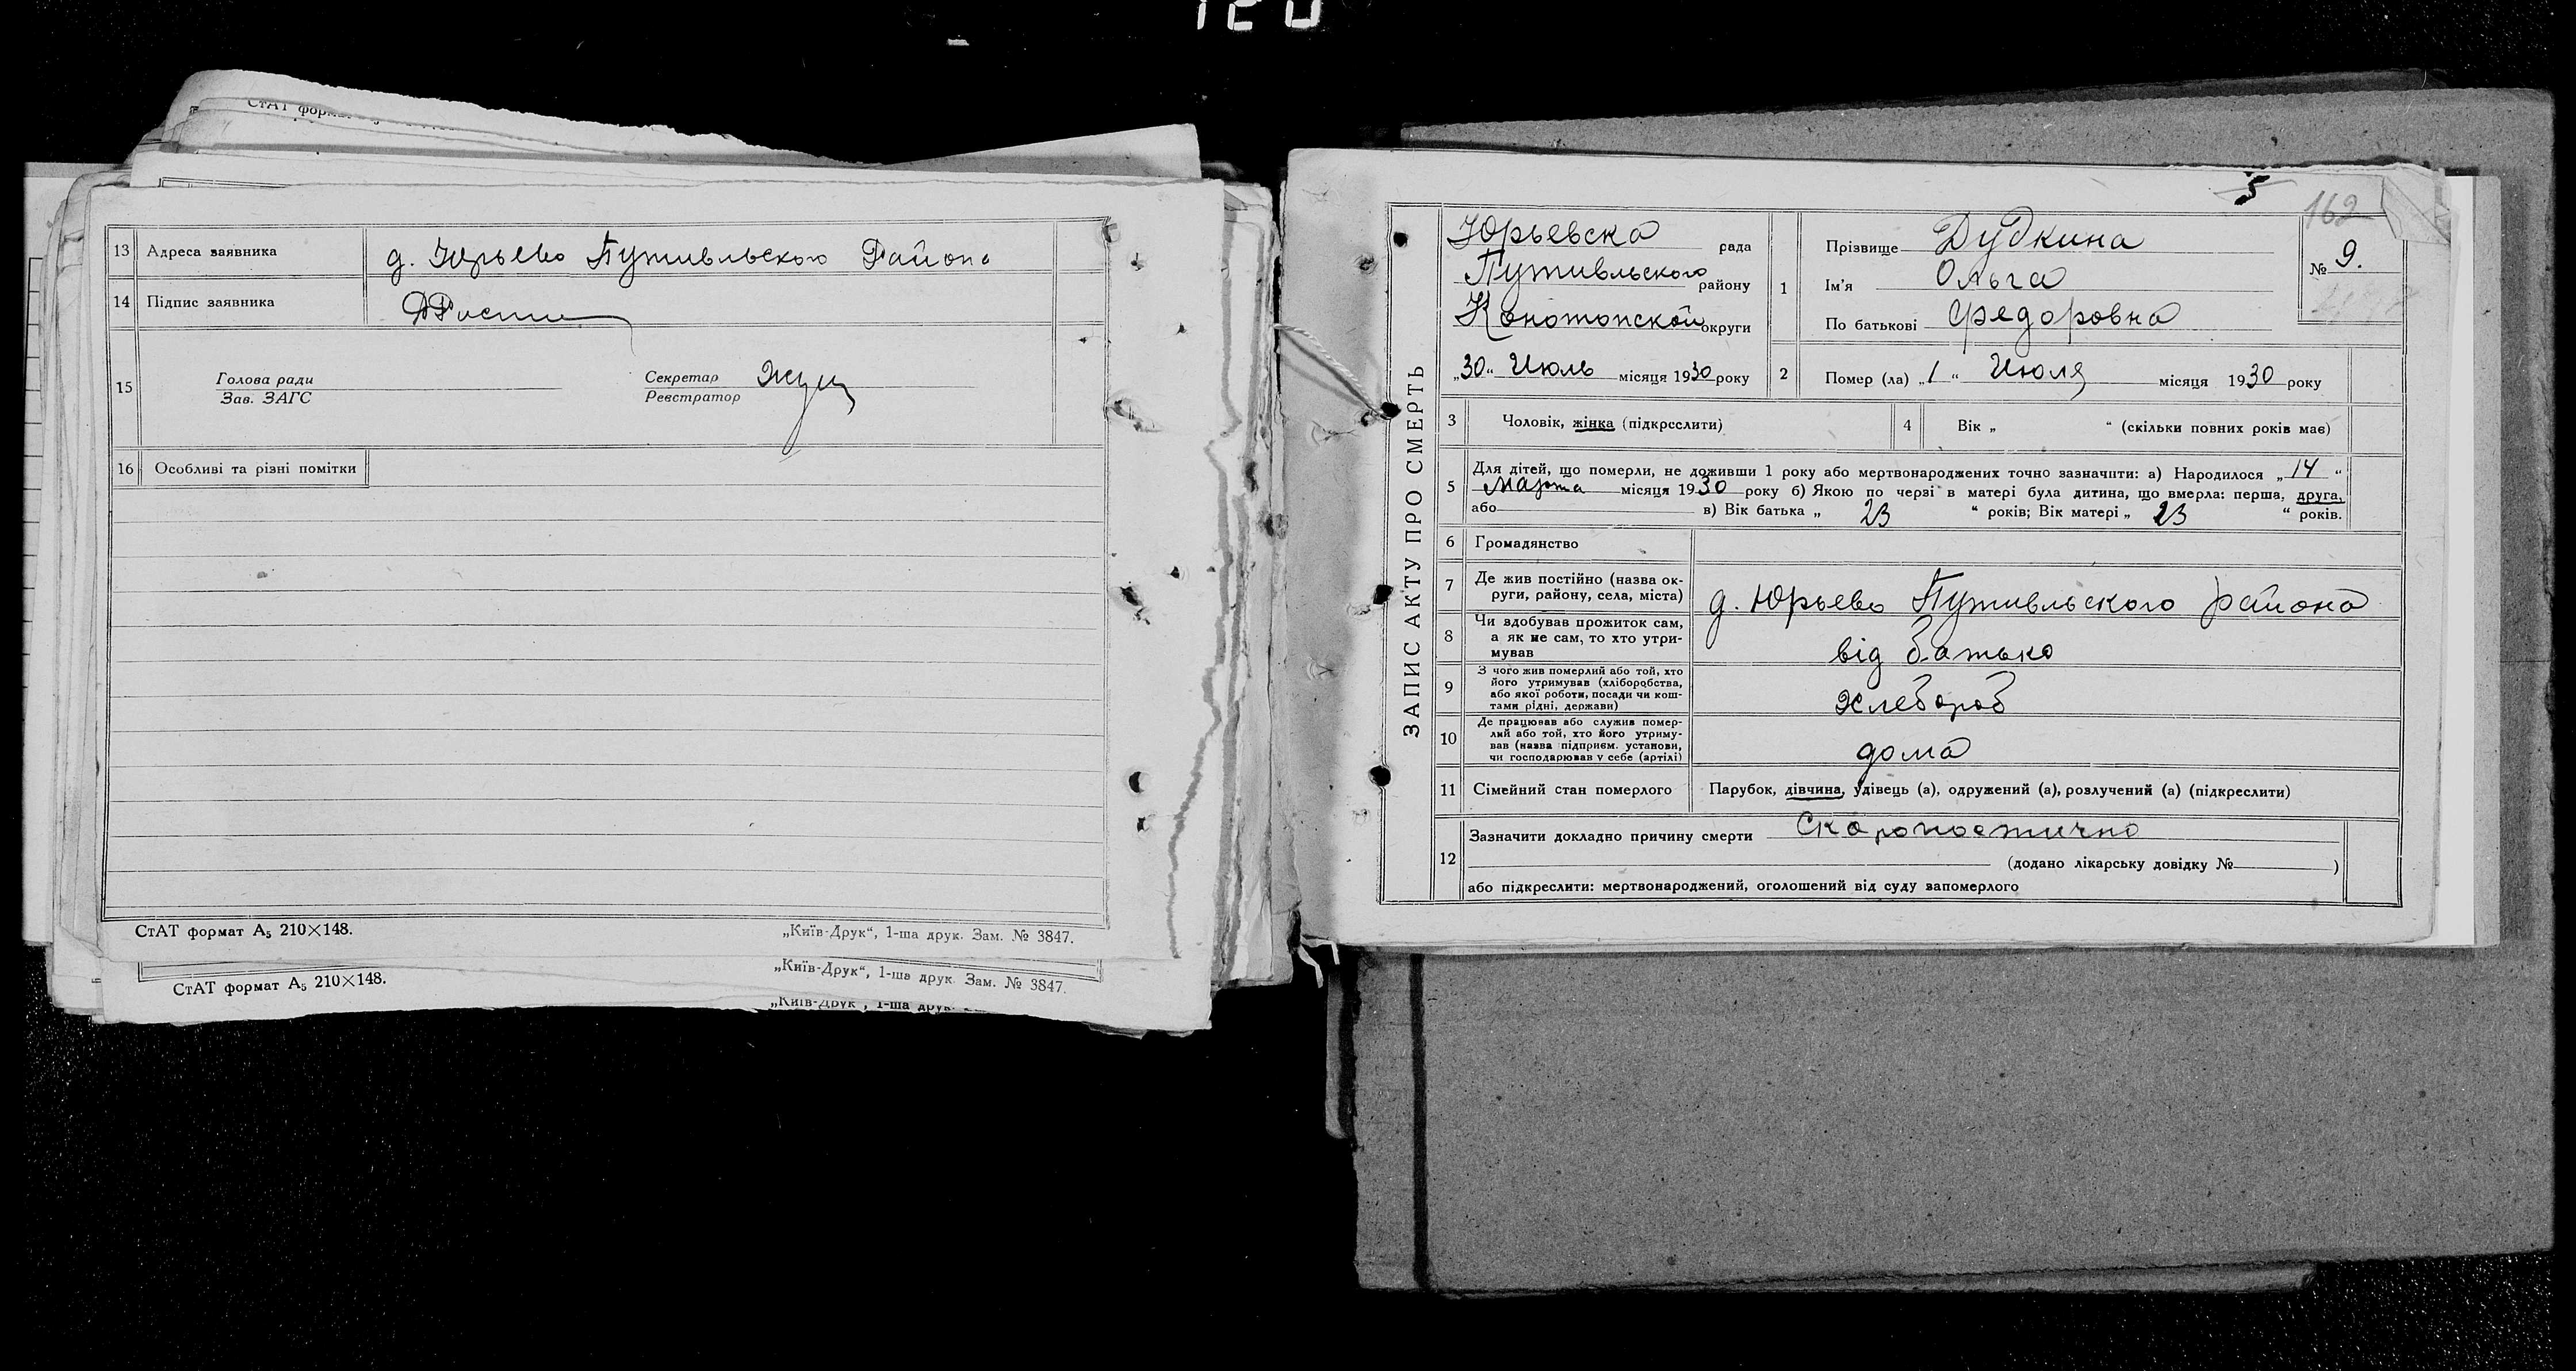 СтАТ
13 Адреса заявника д. Юрьево Путивльского Района
14 Підпис заявника
15 Голова ради Секретар
Зав. ЗАГС Реєстратор
16 Особливі та різні помітки
СтАТ формат А5 210×148. „Київ-Друк“, 1-ша друк. Зам. № 3847.
СтАТ формат А5 210×148. „Київ-Друк“, 1-ша друк. Зам. № 3847.
„Київ-Друк“, 1-ша друк.
5
162
№ 9.
ЗАПИС АКТУ ПРО СМЕРТЬ
Юрьевска рада
Путивльского району
Конотопской округи
„30“ Июль місяця 1930 року
1 Прізвище Дудкина
Ім'я Ольга
По батькові Федоровна
2 Помер (ла) „1“ Июля місяця 1930 року
3 Чоловік, жінка (підкреслити)
4 Вік „ “ (скільки повних років має)
5 Для дітей, що померли, не доживши 1 року або мертвонароджених точно зазначити: а) Народилося „14“
Марта місяця 1930 року б) Якою по черзі в матері була дитина, що вмерла: перша, друга,
або в) Вік батька „ 23 “ років; Вік матері „ 23 “ років.
6 Громадянство
7 Де жив постійно (назва ок-
руги, району, села, міста) д. Юрьево Путивльского района
8 Чи здобував прожиток сам,
а як не сам, то хто утри-
мував від батька
9 З чого жив померлий або той, хто
його утримував (хліборобства,
або якої роботи, посади чи кош-
тами рідні, держави) Хлебороб
10 Де працював або служив помер-
лий або той, хто його утриму-
вав (назва підприєм. установи,
чи господарював у себе (артілі) дома
11 Сімейний стан померлого Парубок, дівчина, удівець (а), одружений (а), розлучений (а) (підкреслити)
12 Зазначити докладно причину смерти Скоропостично
(додано лікарську довідку № )
або підкреслити: мертвонароджений, оголошений від суду запомерлого